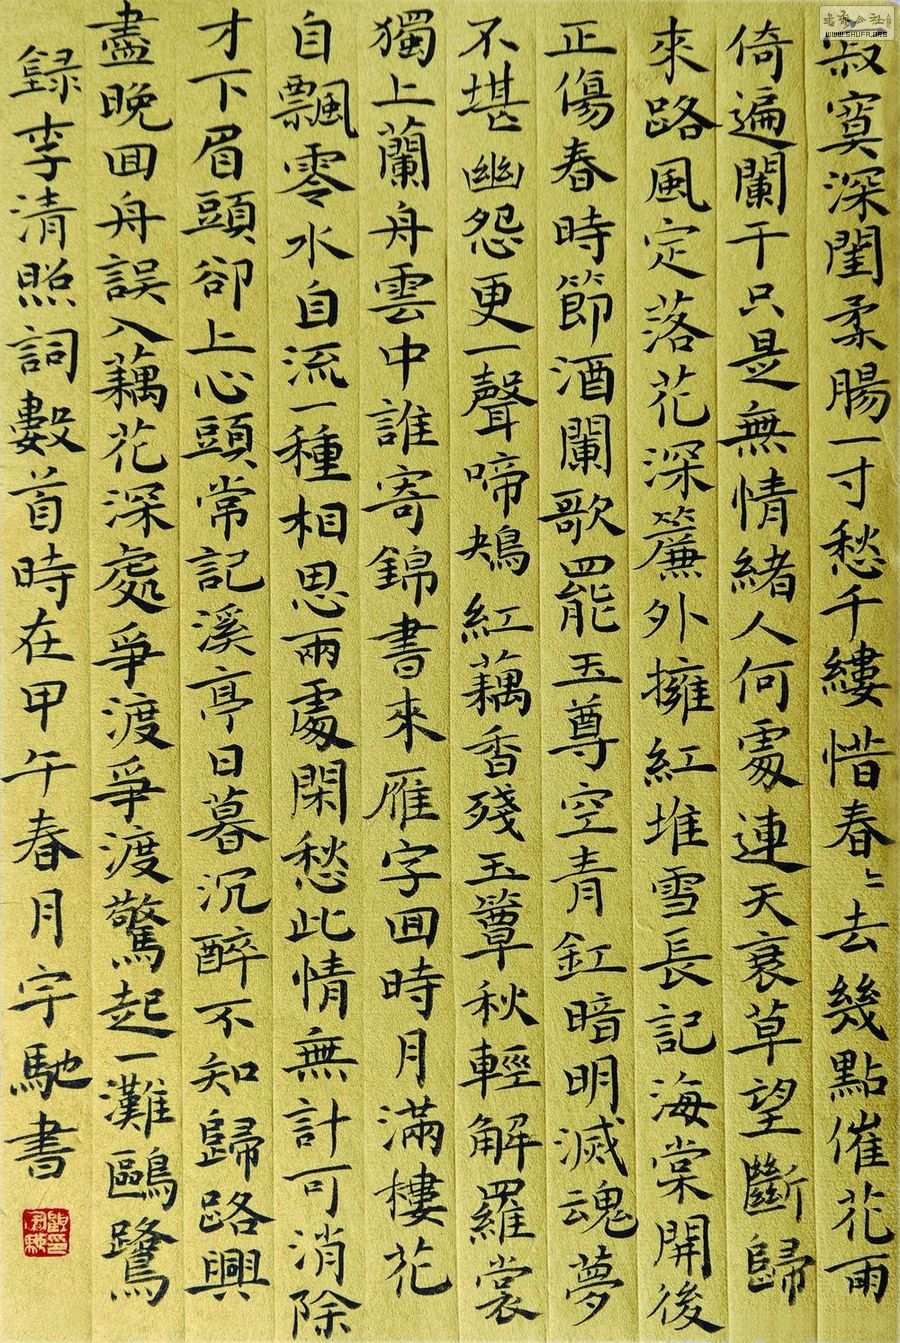 寂寞深閨柔腸一寸愁千縷惜春〻去幾點催花雨
倚遍闌干只是無情緒人何處連天衰草望斷歸
來路風定落花深簾外擁紅堆雪長記海棠開後
正傷春時節酒闌歌罷玉尊空青釭暗明滅魂夢
不堪幽怨更一聲啼鴂紅藕香殘玉簟秋輕解羅裳
獨上蘭舟雲中誰寄錦書來雁字回時月滿樓花
自飄零水自流一種相思兩處閑愁此情無計可消除
才下眉頭卻上心頭常記溪亭日暮沉醉不知歸路興
盡晚回舟誤入藕花深處爭渡爭渡驚起一灘鷗鷺
錄李清照詞數首時在甲午春月宇馳書
WWW.SHUFA.ORG